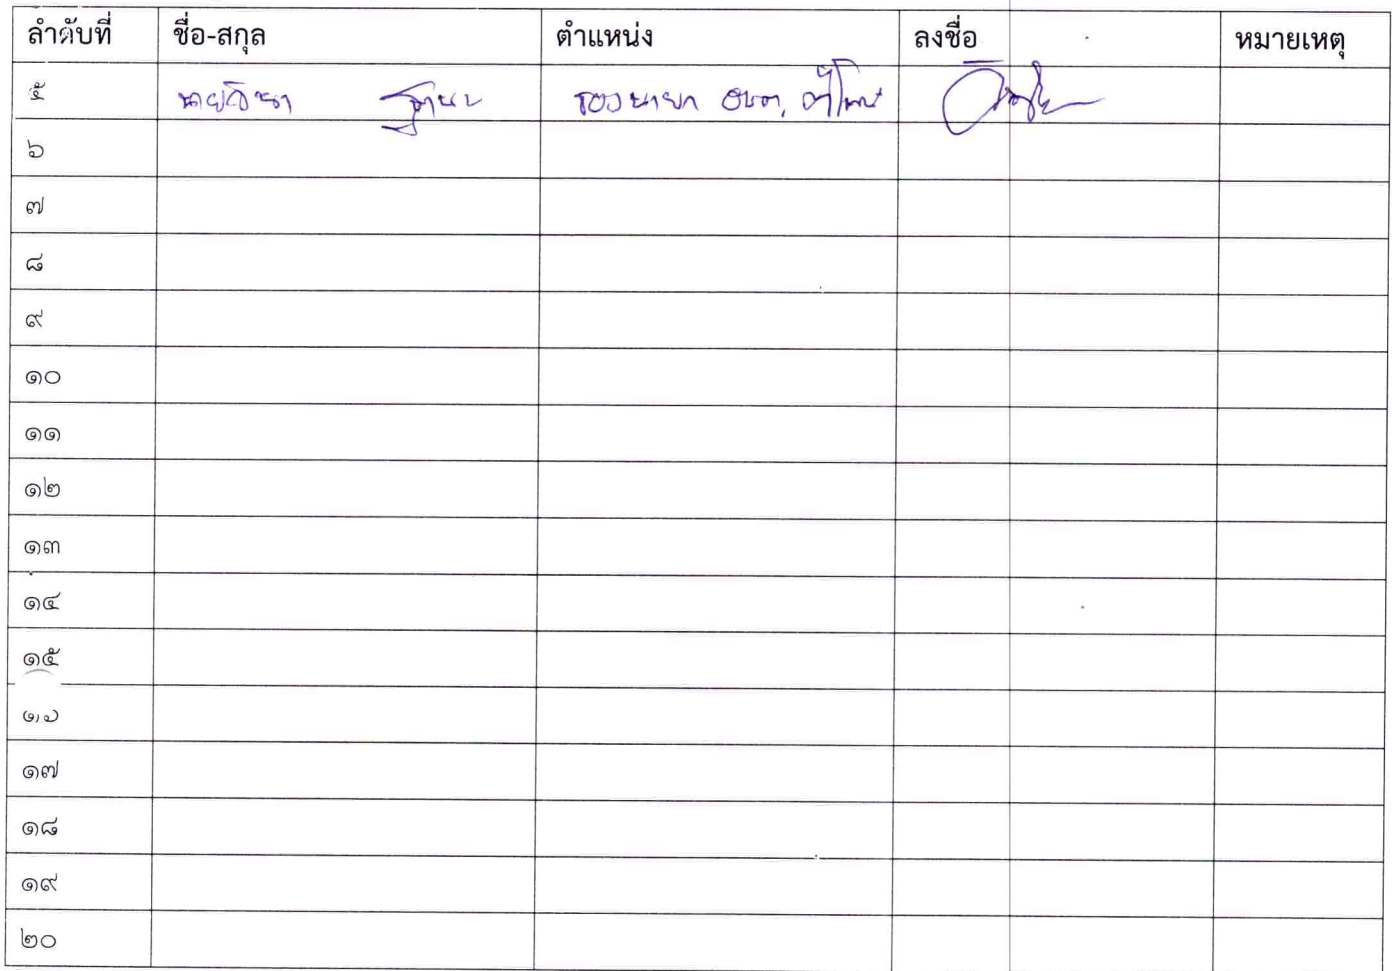 ลำดับที่ ชื่อ-สกุล ตำแหน่ง ลงชื่อ หมายเหตุ
๕ รองนายก อบต.
๖
๗
๘
๙
๑๐
๑๑
๑๒
๑๓
๑๔
๑๕
๑๖
๑๗
๑๘
๑๙
๒๐